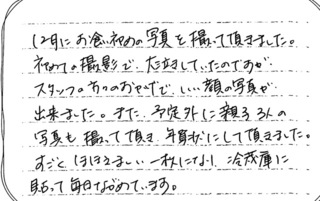 12月にお食い初めの写真を撮って頂きました。
初めての撮影で、だったのですが
スタッフの方のおかげで、いい顔の写真が
出来ました。また、予定外に親子3人の
写真も撮って頂き、年賀状にして頂きました。
すごくほほえましい一枚になり、冷蔵庫に
貼って毎日ながめています。